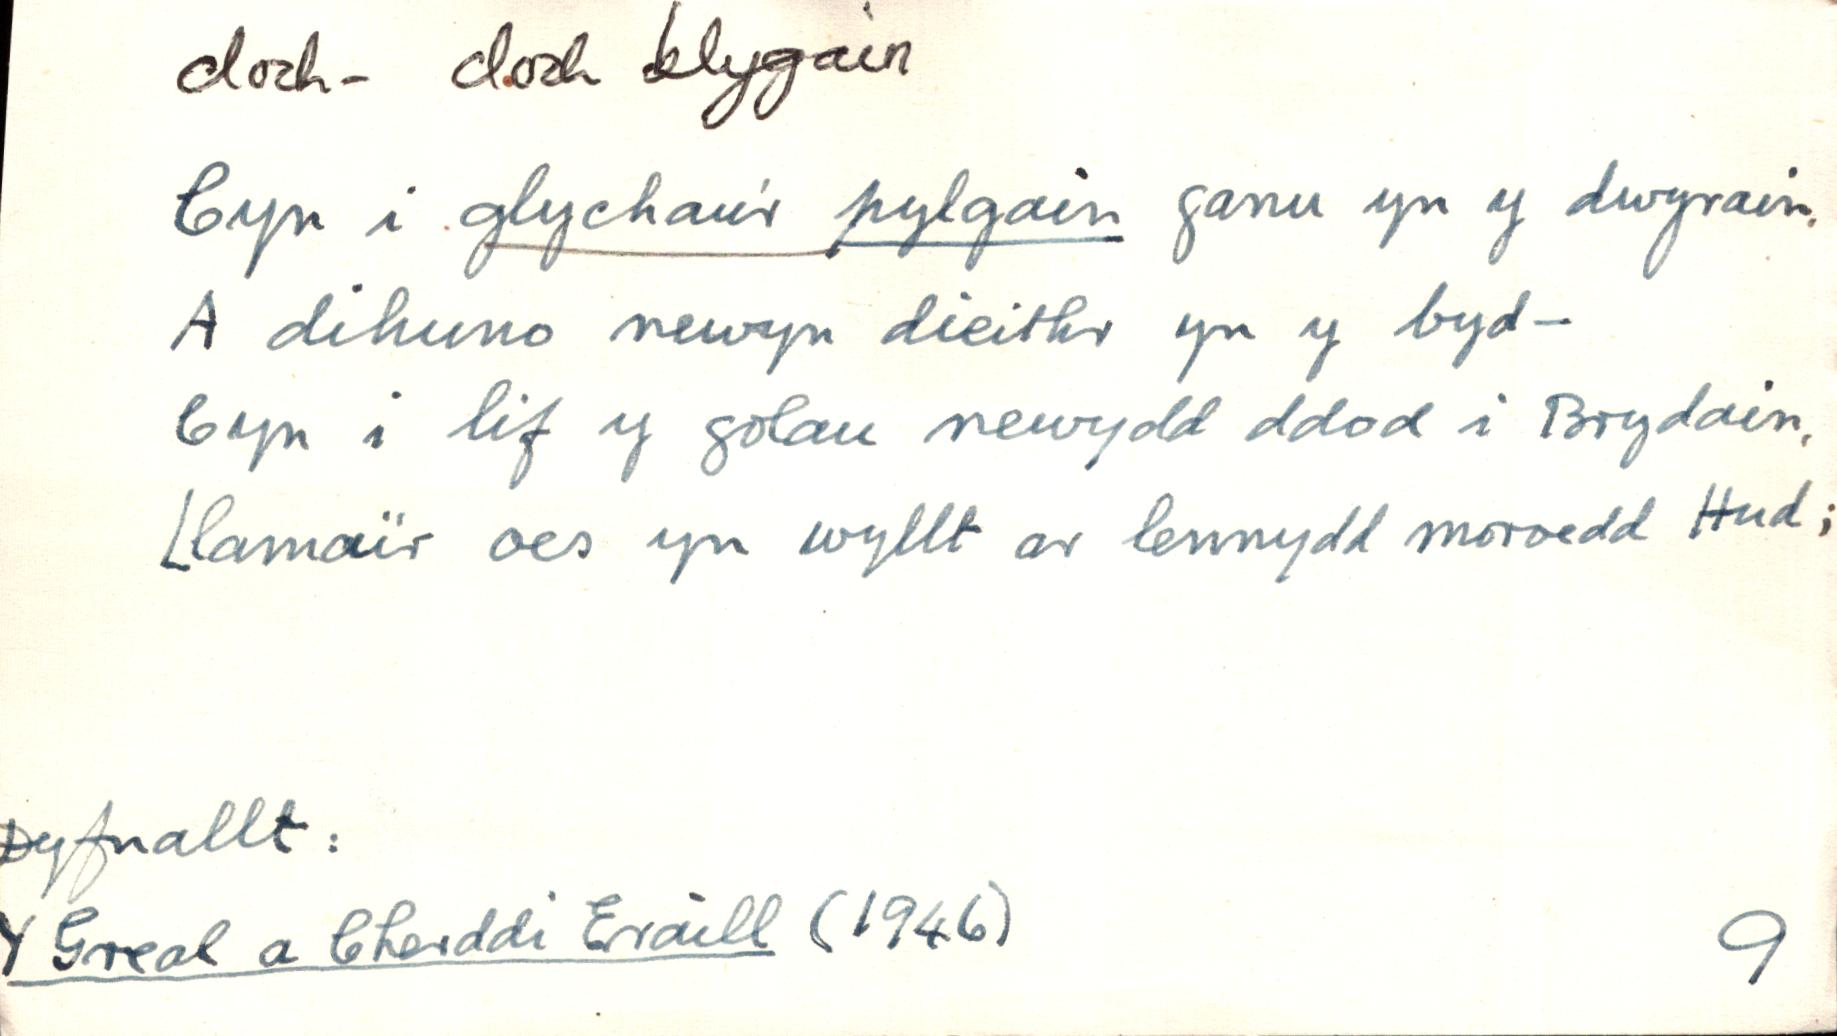 cloch- cloch blygain
Cyn i glychau'r pylgain ganu yn y dwyrain,
A dihuno newyn dieithr yn y byd-
Cyn i lif y golau newydd ddod i Brydain,
Llamai'r oes yn wyllt ar lennydd moroedd Hud;
Dyfnallt:
Y Greal a Cherddi Eraill (1946)
9